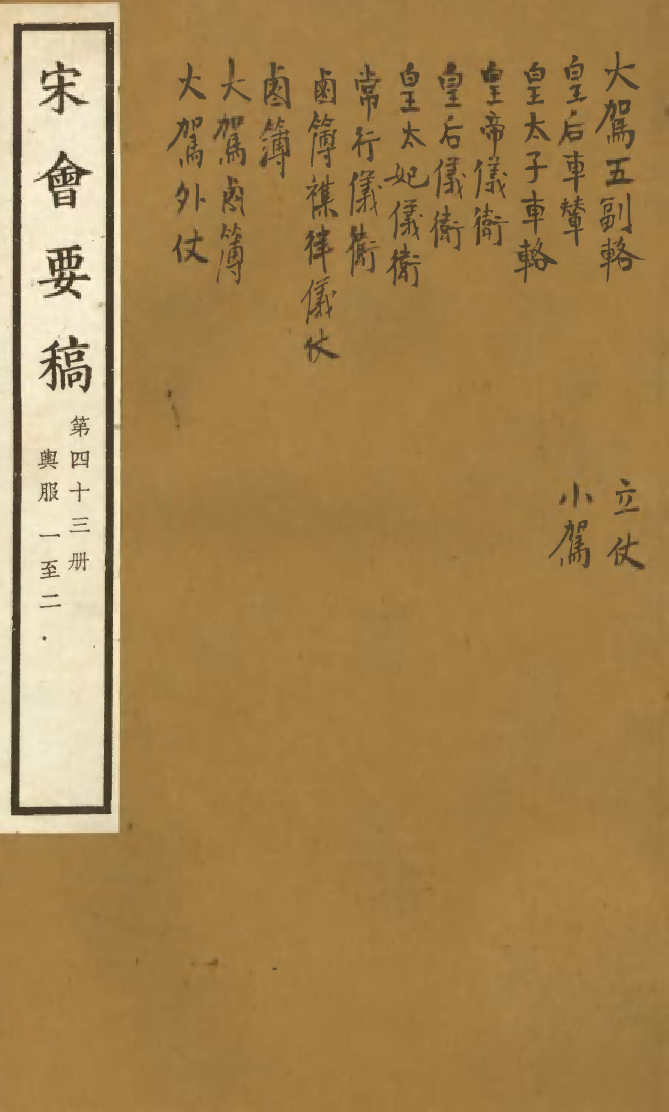 大駕五副輅
皇后車輦
皇太子車輅
皇帝儀衛
皇后儀衛
皇太妃儀衛
常行儀衛
鹵簿襍律儀仗
鹵簿
大駕鹵簿
大駕外仗
立仗
小駕
宋會要稿
第四十三册
輿服一至二